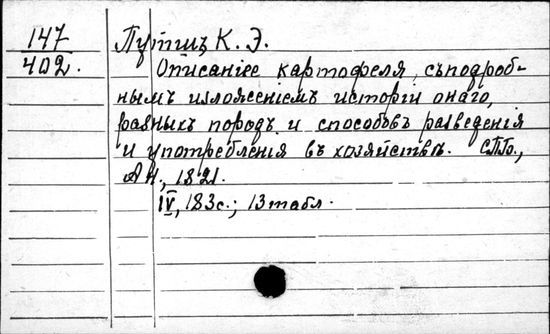 147
402.
Путшъ К. Э.
Описанiе картофеля, съ подроб-
нымъ изложенiемъ исторiи онаго,
разныхъ породъ и способовъ разведенiя
и употребленiя въ хозяйствѣ. СПб.,
АН, 1821.
IV, 183с.; 13 табл.